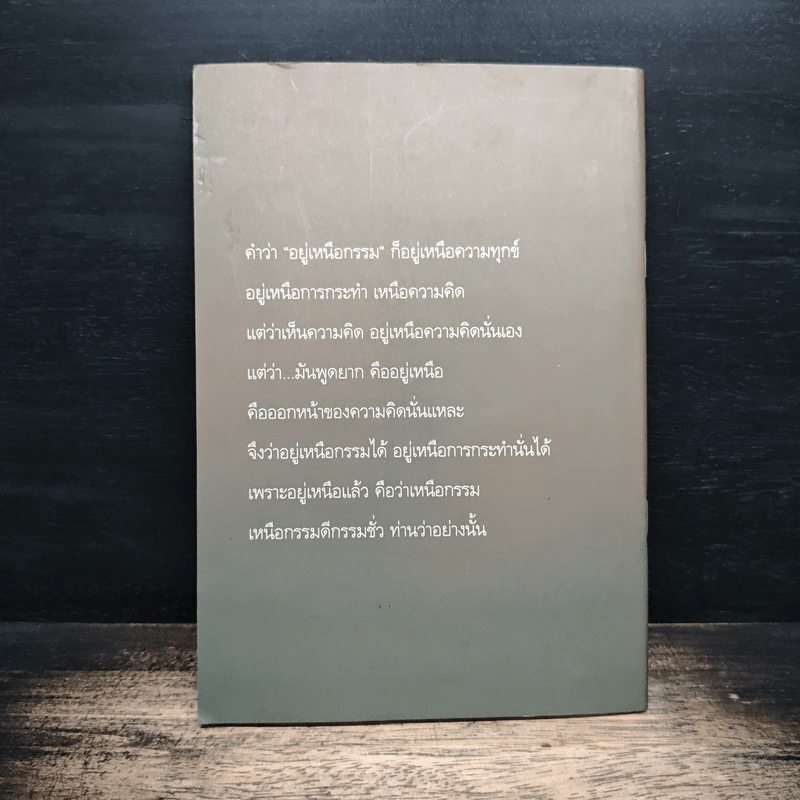 คำว่า "อยู่เหนือกรรม" ก็อยู่เหนือความทุกข์
อยู่เหนือการกระทำ เหนือความคิด
แต่ว่าเห็นความคิด อยู่เหนือความคิดนั่นเอง
แต่ว่า...มันพูดยาก คืออยู่เหนือ
คือออกหน้าของความคิดนั่นแหละ
จึงว่าอยู่เหนือกรรมได้ อยู่เหนือการกระทำนั่นได้
เพราะอยู่เหนือแล้ว คือว่าเหนือกรรม
เหนือกรรมดีกรรมชั่ว ท่านว่าอย่างนั้น